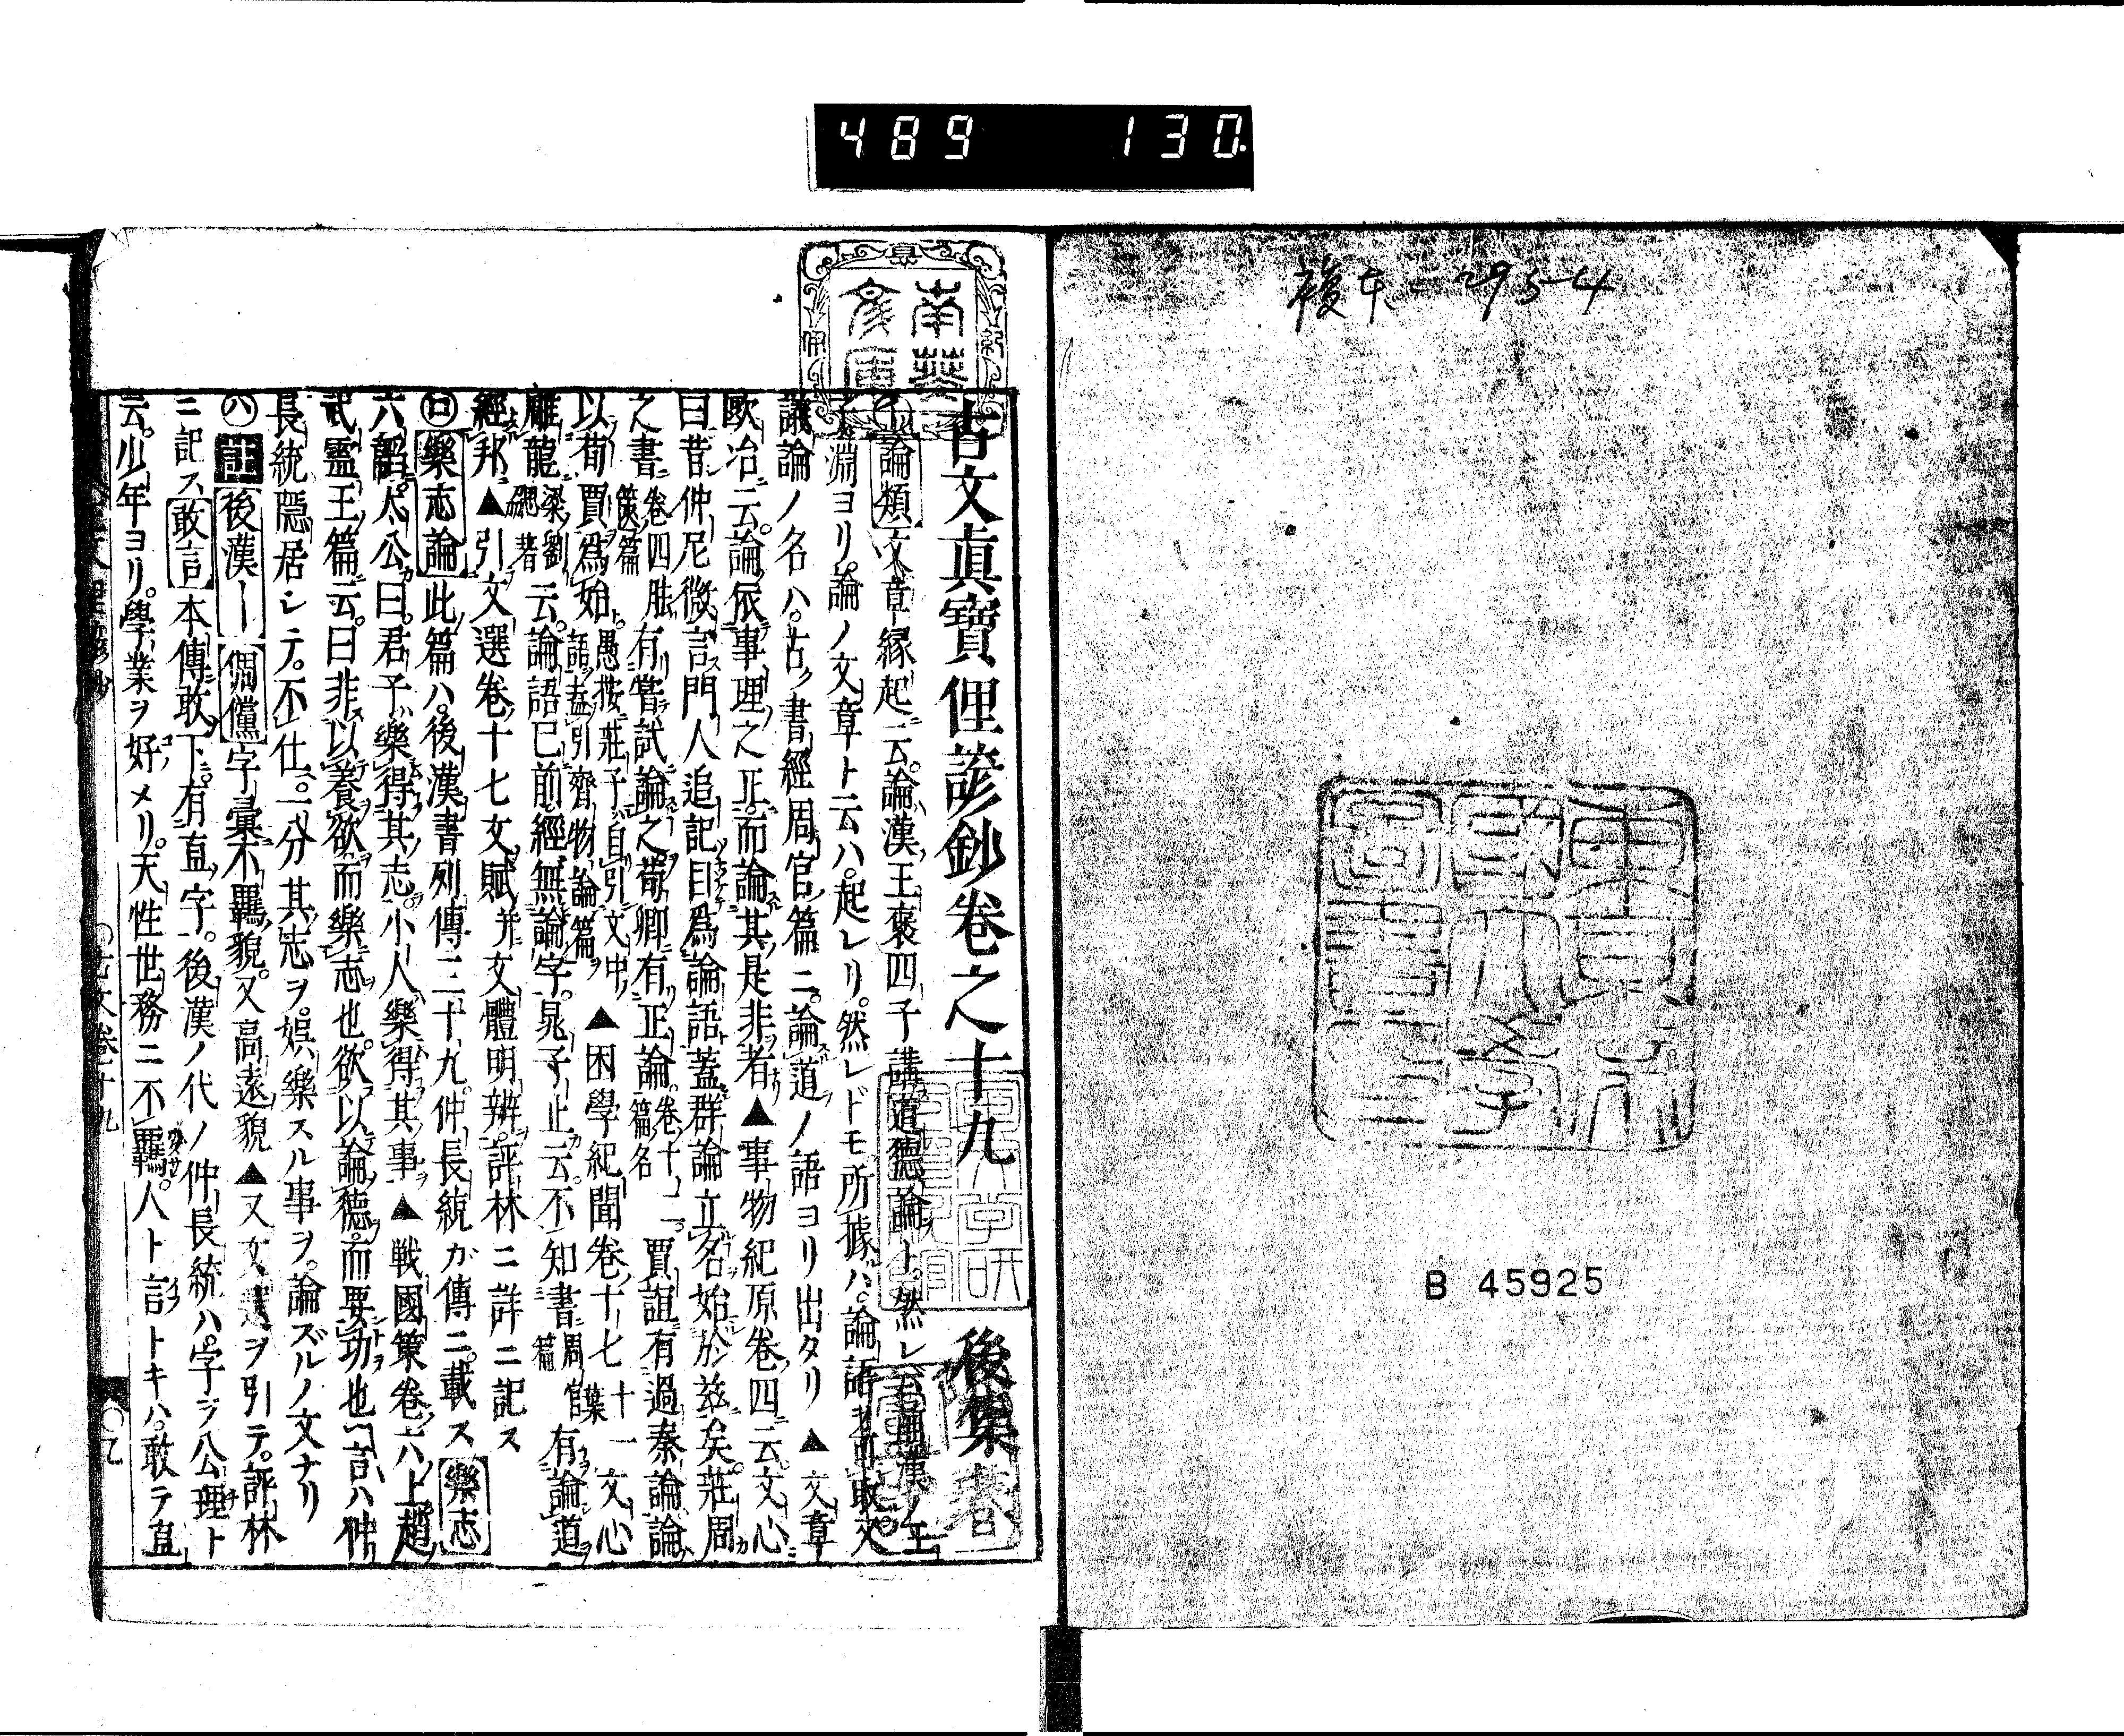 489 130
複本-2954
東京帝國大學圖書印
B 45925
南葵文庫
古文真寶俚諺鈔卷之十九 後集
論類 文章縁起ニ云。論漢王褒四子講道德論ト。然レハ前漢ノ王
子淵ヨリ。論ノ文章ト云ハ。起レリ。然レドモ所據ハ。論語
議論ノ名ハ。古ノ書經周官ノ篇ニ。論道ノ語ヨリ出タリ▲文章
歐冶ニ云。論依事理之正。而論其是非者▲事物紀原卷四云。文心
曰昔仲尼微言門人追記目爲論語蓋群論立名始於兹矣。莊周
之書卷四胠篋篇有嘗試論之荀卿有正論。卷十二篇名賈誼有過秦論論
以荀賈爲始。愚按莊子自引文中語盖引齊物論篇▲困學紀聞卷十七十一葉文心
雕龍梁劉勰著云。論語已前經無論字。晁子止云。不知書周官篇有論道
經邦▲引文選卷十七文賦并文體明辨評林ニ詳ニ記ス
㋺樂志論 此篇ハ。後漢書列傳三十九。仲長統ガ傳ニ載ス 樂志
六韜。太公曰。君子樂得其志。小人樂得其事▲戰國策卷六上趙
武靈王篇云。曰非以養欲而樂志也。欲以論德。而要功也言ハ仲
長統隱居シテ。不仕。一分其志ヲ。娯樂スル事ヲ。論ズルノ文ナリ
㋩註 後漢― 倜儻 字彙不羈貌。又高遠貌▲又文選ヲ引テ。評林
ニ記ス 敢言 本傳敢下。有直字。後漢ノ代ノ仲長統ハ。字ヲ公理ト
云。少年ヨリ。學業ヲ好メリ。天性世務ニ不羈。人ト言トキハ。敢テ直
古文卷十九